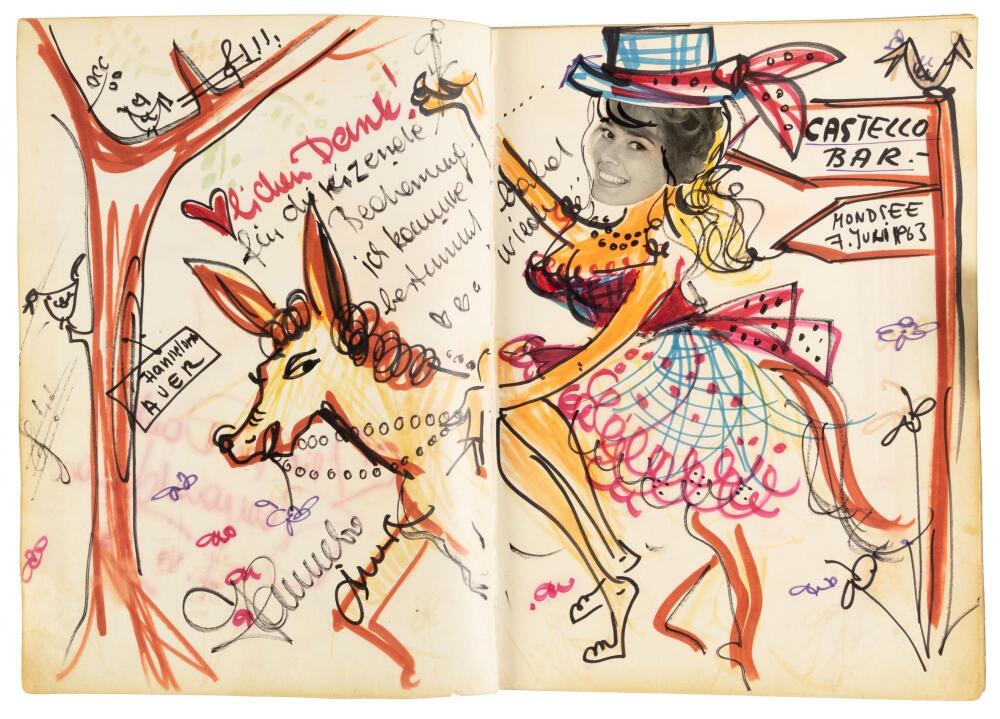 ♥lichen Dank!
für die reizende
ich komme
bestimmt
bald
wieder
Hannelore
AUER
Hannelore
CASTELLO
BAR.-
MONDSEE
7. JULI 1963